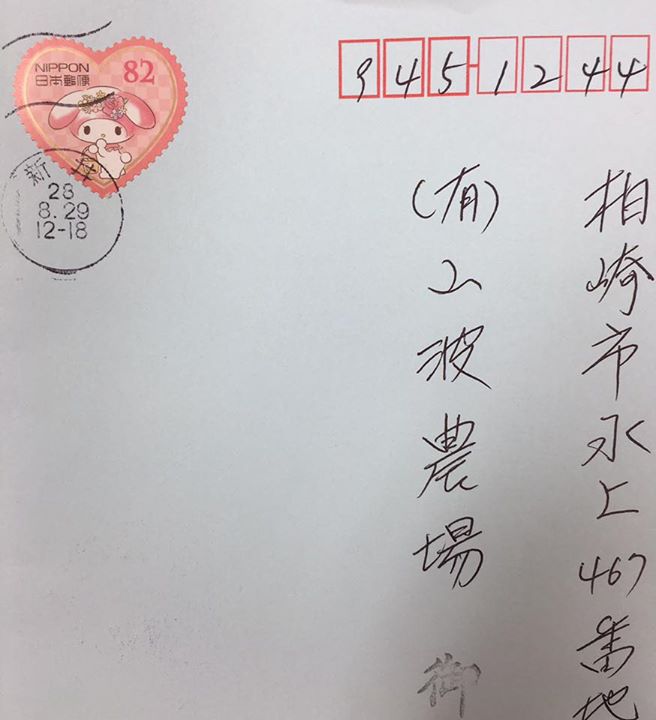 NIPPON
日本郵便
82
新座
28
8.29
12-18
945-1244
柏崎市水上467番地
(有)山波農場 御